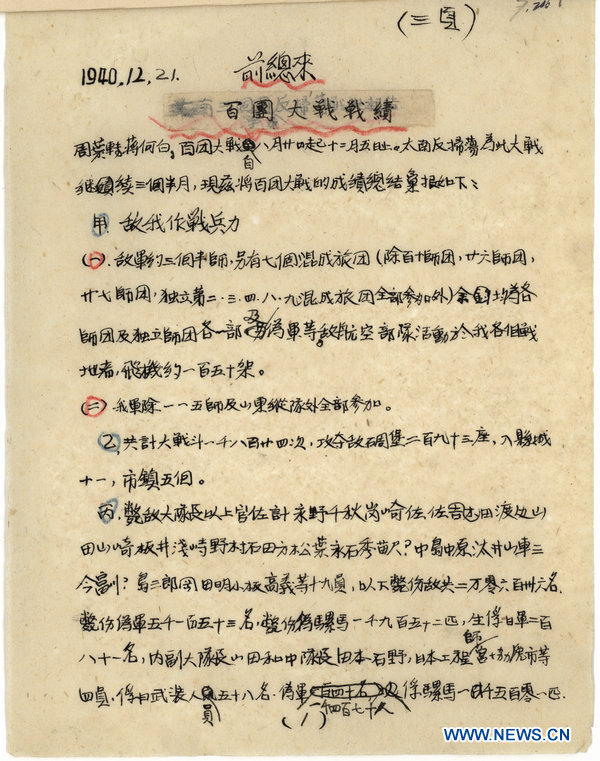 (三頁)
1940,12,21.
前總來
百團大戰戰績
周葉轉蔣何白。百団大戰自八月廿日起十二月五日止。太南反掃蕩為此大戰
継續三個半月,現茲將百団大戰的成績總結彙报如下:
甲 敌我作戰兵力
(一).敌軍約三個半師,另有七個混成旅団(除百十師団,廿六師団,
廿七師団,独立第二・三・四・八・九混成旅団全部参加外)余均為各
師団及独立師団各一部及偽軍等。敌航空部隊活動於我各作戰
地者,飛機約一百五十架。
(二).我軍除一一五師及山東縱隊外全部参加。
乙,共計大戰斗一千八百廿四次,攻夺敌碉堡二百九十三座,入縣城
十一,市鎮五個。
丙.斃敌大隊長以上官佐計永野千秋岗崎佐佐吉田渡边山
田山崎板井淺崎野村石田方松葉永石秀苗尺?中島中原汰井山車三
今富川?島三郎岡田明小板高義等十九員,以下斃伤敌共二万零六百卅六名.
斃伤偽軍五千一百五十三名,斃伤騾馬一千九百五十二匹,生俘日軍二百
八十一名,内副大隊長山田和中隊長田本石野,日本工程師宮
四員.俘日武装人員五十八名.偽軍 俘騾馬一千五百零一匹.
(1)
WWW.NEWS.CN